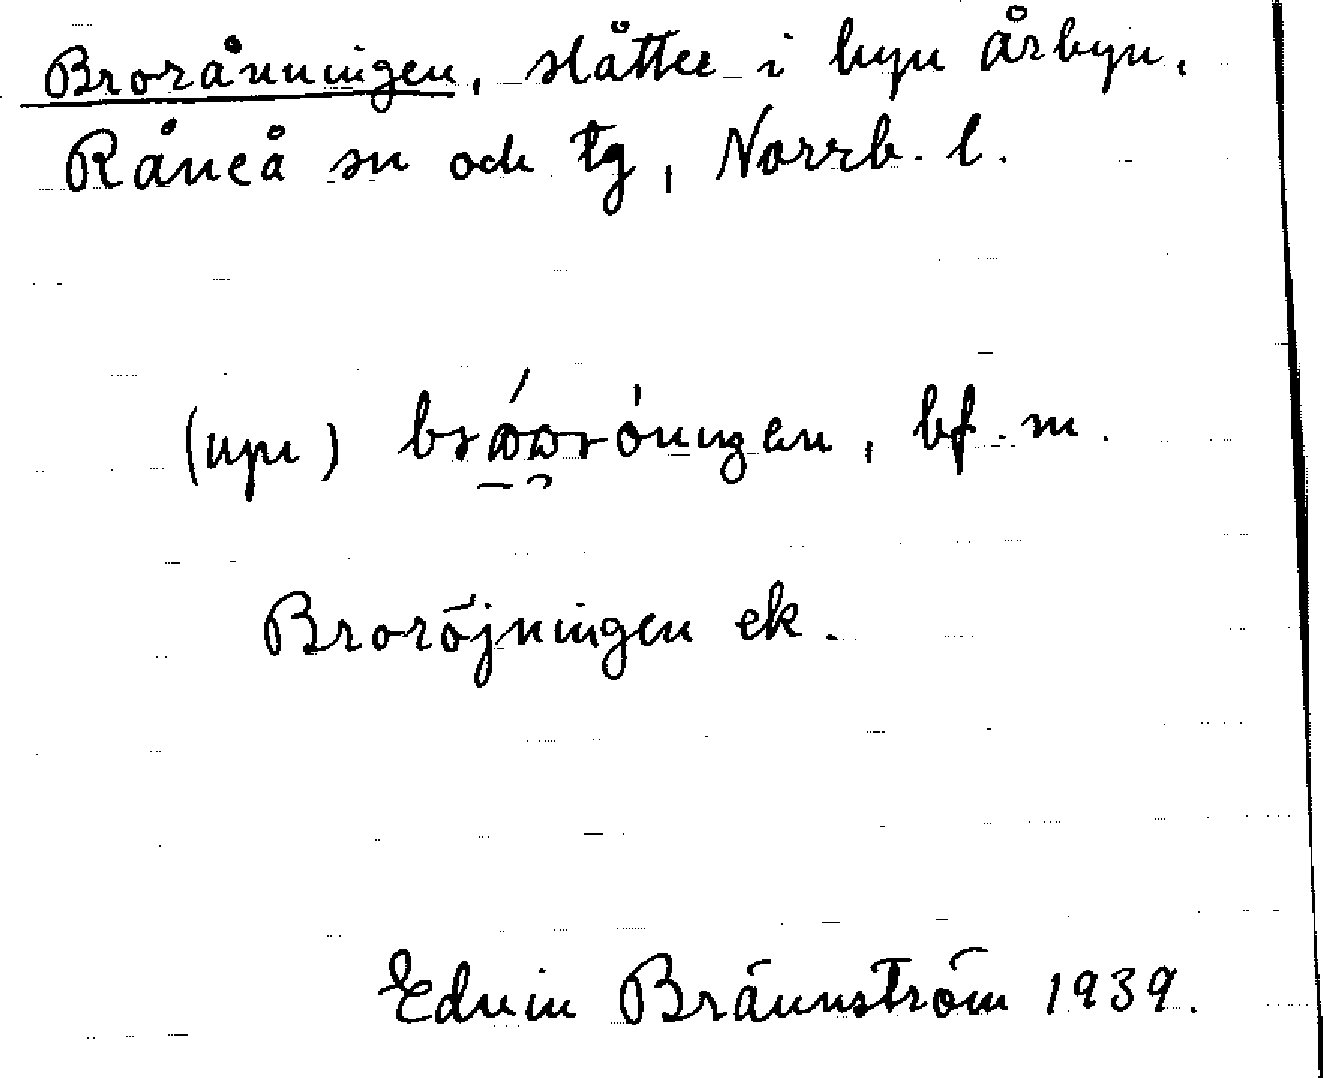 Broränningen, slåtter i byn Årbyn,
Råneå sn och tg, Norrb. l.
(upu) , bf. m.
Broröjningen ek.
Edvin Brännström 1939.